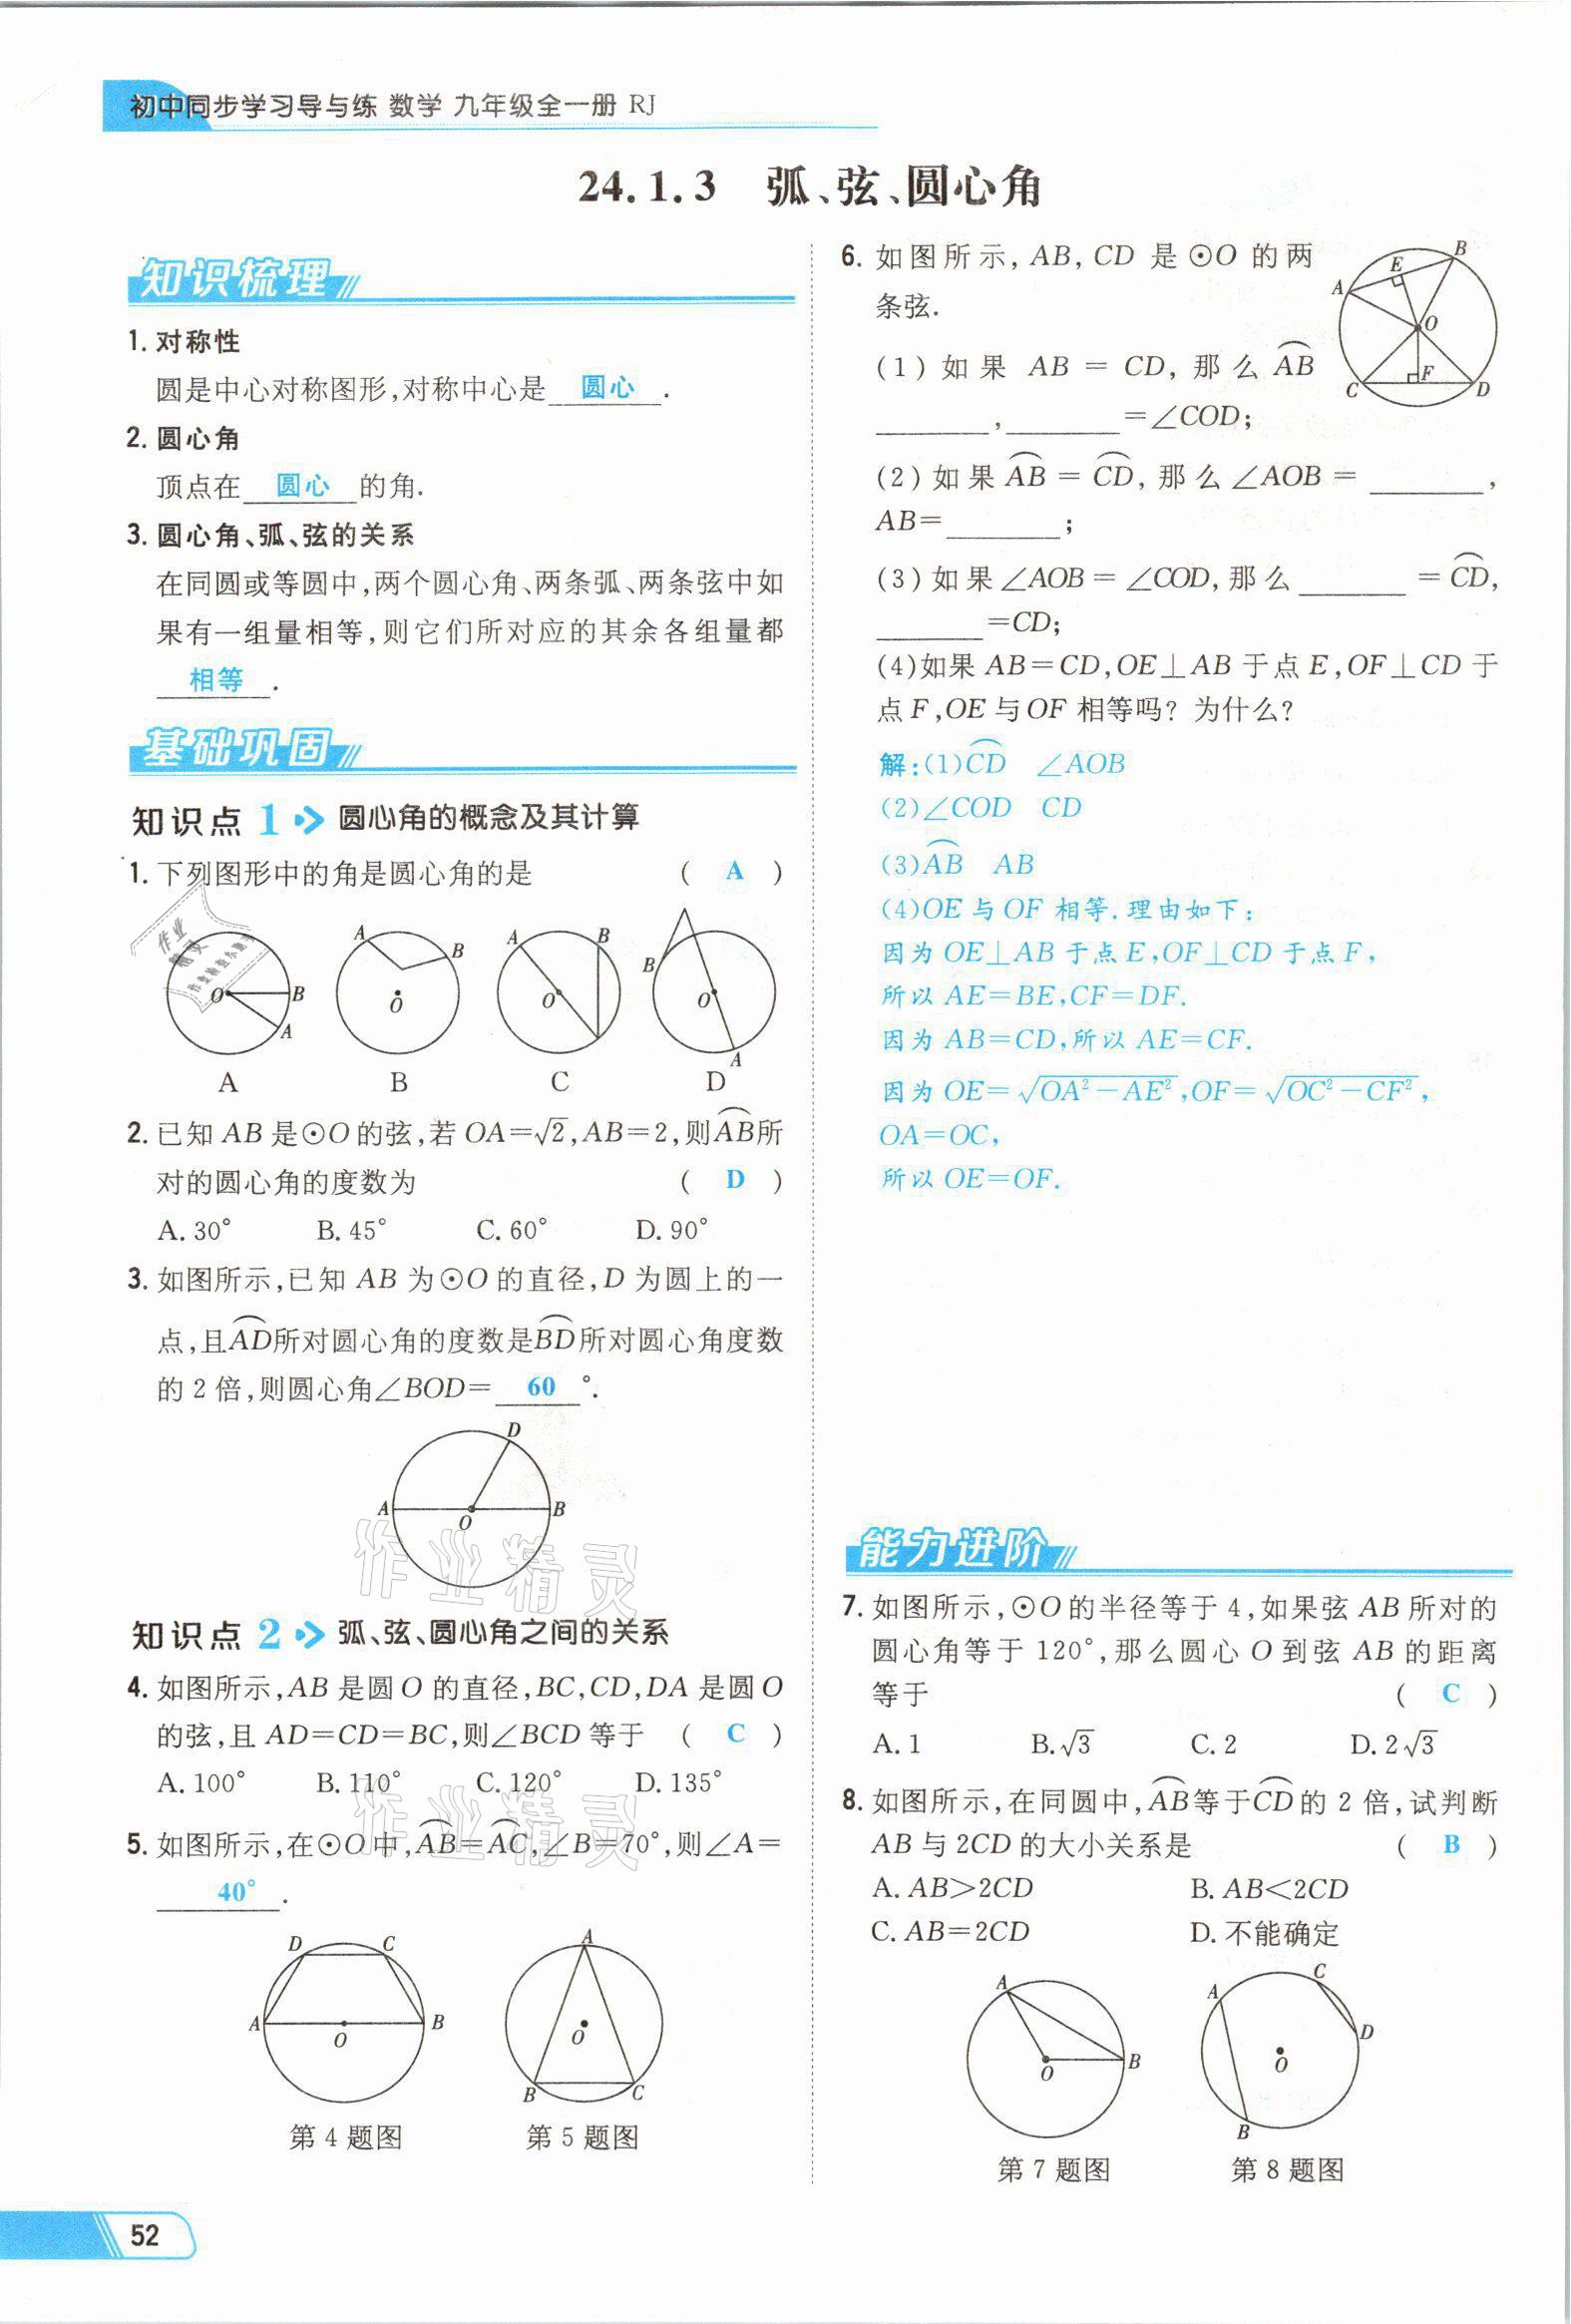 初中同步学习导与练 数学 九年级全一册 RJ
24.1.3 弧、弦、圆心角
知识梳理
1. 对称性
圆是中心对称图形,对称中心是 圆心 .
2. 圆心角
顶点在 圆心 的角.
3. 圆心角、弧、弦的关系
在同圆或等圆中,两个圆心角、两条弧、两条弦中如
果有一组量相等,则它们所对应的其余各组量都
相等 .
基础巩固
知识点 1 圆心角的概念及其计算
1. 下列图形中的角是圆心角的是 ( A )
O B A
A B O
A B O
B O A
A B C D
2. 已知 AB 是⊙O 的弦,若 OA=√2,AB=2,则A͡B所
对的圆心角的度数为 ( D )
A. 30° B. 45° C. 60° D. 90°
3. 如图所示,已知 AB 为⊙O 的直径,D 为圆上的一
点,且A͡D所对圆心角的度数是B͡D所对圆心角度数
的 2 倍,则圆心角∠BOD= 60 °.
D
A O B
知识点 2 弧、弦、圆心角之间的关系
4. 如图所示,AB 是圆 O 的直径,BC,CD,DA 是圆 O
的弦,且 AD=CD=BC,则∠BCD 等于 ( C )
A. 100° B. 110° C. 120° D. 135°
5. 如图所示,在⊙O 中,A͡B=A͡C,∠B=70°,则∠A=
40° .
D C A O B
A O B C
第 4 题图 第 5 题图
52
6. 如图所示,AB,CD 是⊙O 的两
条弦.
(1)如果 AB=CD,那么A͡B
______,______=∠COD;
(2)如果A͡B=C͡D,那么∠AOB=______,
AB=______;
(3)如果∠AOB=∠COD,那么______=C͡D,
______=CD;
(4)如果 AB=CD,OE⊥AB 于点 E,OF⊥CD 于
点 F,OE 与 OF 相等吗? 为什么?
A E B O C F D
解:(1)C͡D ∠AOB
(2)∠COD CD
(3)A͡B AB
(4)OE 与 OF 相等.理由如下:
因为 OE⊥AB 于点 E,OF⊥CD 于点 F,
所以 AE=BE,CF=DF.
因为 AB=CD,所以 AE=CF.
因为 OE=√(OA²-AE²),OF=√(OC²-CF²),
OA=OC,
所以 OE=OF.
能力进阶
7. 如图所示,⊙O 的半径等于 4,如果弦 AB 所对的
圆心角等于 120°,那么圆心 O 到弦 AB 的距离
等于 ( C )
A. 1 B. √3 C. 2 D. 2√3
8. 如图所示,在同圆中,A͡B等于C͡D的 2 倍,试判断
AB 与 2CD 的大小关系是 ( B )
A. AB>2CD B. AB<2CD
C. AB=2CD D. 不能确定
A O B
A C D O B
第 7 题图 第 8 题图
作业精灵
作业精灵
作业
精灵